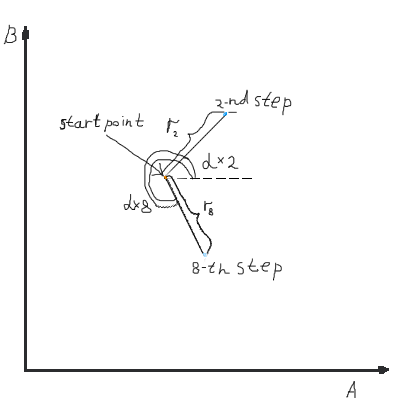 B
2-nd step
start point
r2
d×2
d×8
r8
8-th step
A